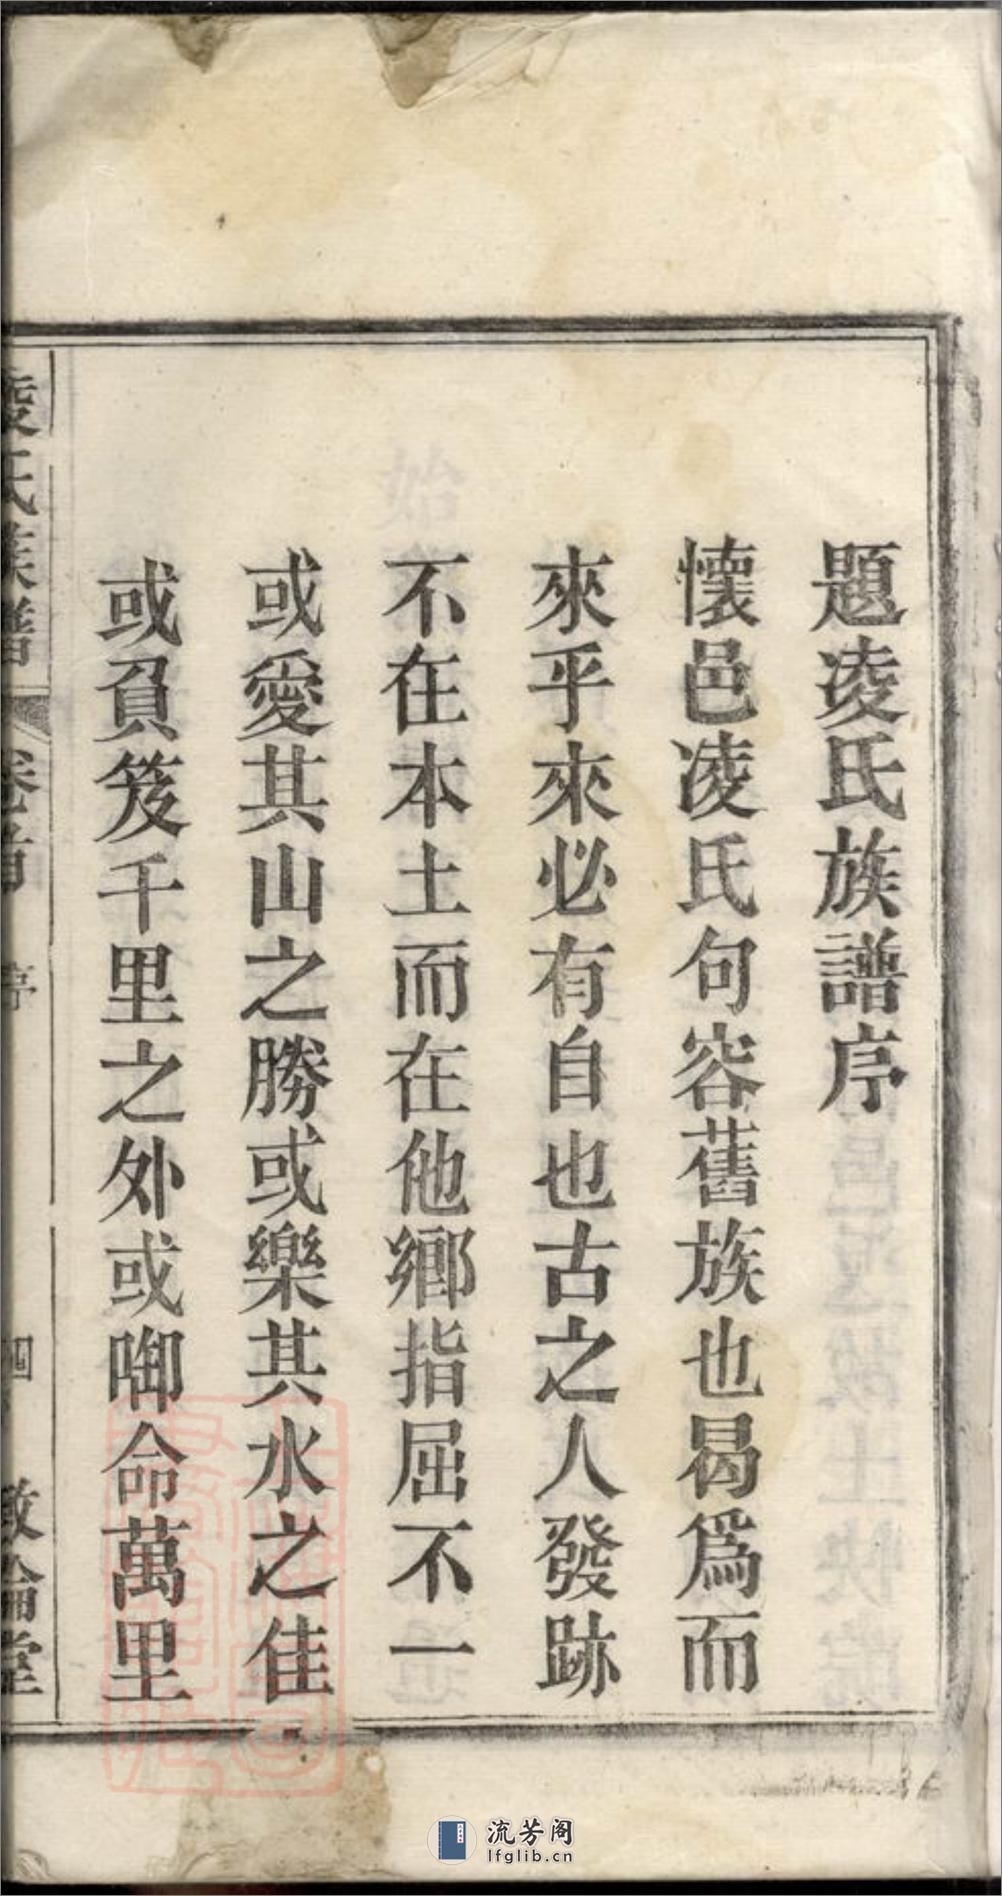 題凌氏族譜序
懷邑凌氏句容舊族也曷爲而
來乎來必有自也古之人發跡
不在本土而在他鄉指屈不一
或愛其山之勝或樂其水之佳
或負笈千里之外或啣命萬里
凌氏族譜 卷首 序 四 敦倫堂
流芳阁
lfglib.cn